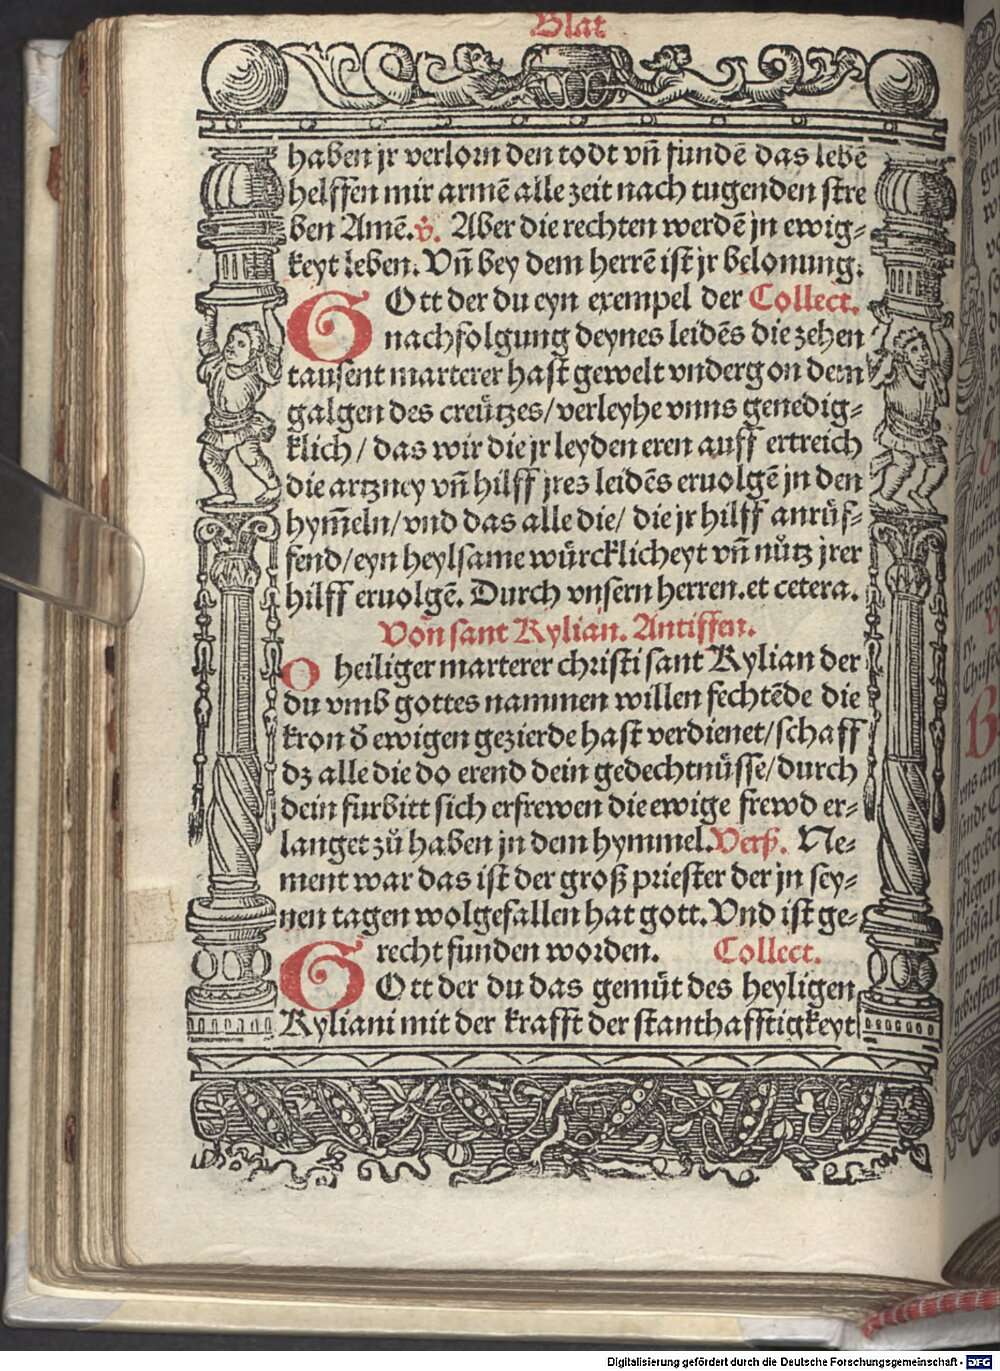 Blat
haben jr verlorn den todt vñ fundē das lebē
helffen mir armē alle zeit nach tugenden stre
ben Amē. v̊. Aber die rechten werdē jn ewig⸗
keyt leben. Vñ bey dem herrē ist jr belonung.
GOtt der du eyn exempel der Collect.
nachfolgung deynes leidēs die zehen
tausent marterer hast gewelt vndergon dem
galgen des creützes/verleyhe vnns genedig⸗
klich/ das wir die jr leyden eren auff ertreich
die artzney vñ hilff jres leidēs eruolgē jn den
hym̄eln/vnd das alle die/ die jr hilff anrüf⸗
fend/eyn heylsame würcklicheyt vñ nůtz jrer
hilff eruolgē. Durch vnsern herren.et cetera.
Von sant Kylian. Antiffen.
O heiliger marterer christi sant Kylian der
du vmb gottes nammen willen fechtēde die
kron d̄ ewigen gezierde hast verdienet/schaff
dz alle die do erend dein gedechtnüsse/durch
dein furbitt sich erfrewen die ewige frewd er⸗
langet zů haben jn dem hymmel. Verß. Ne⸗
ment war das ist der groß priester der jn sey⸗
nen tagen wolgefallen hat gott. Vnd ist ge⸗
recht funden worden. Collect.
GOtt der du das gemüt des heyligen
Kyliani mit der krafft der stanthafftigkeyt
Digitalisierung gefördert durch die Deutsche Forschungsgemeinschaft - DFG